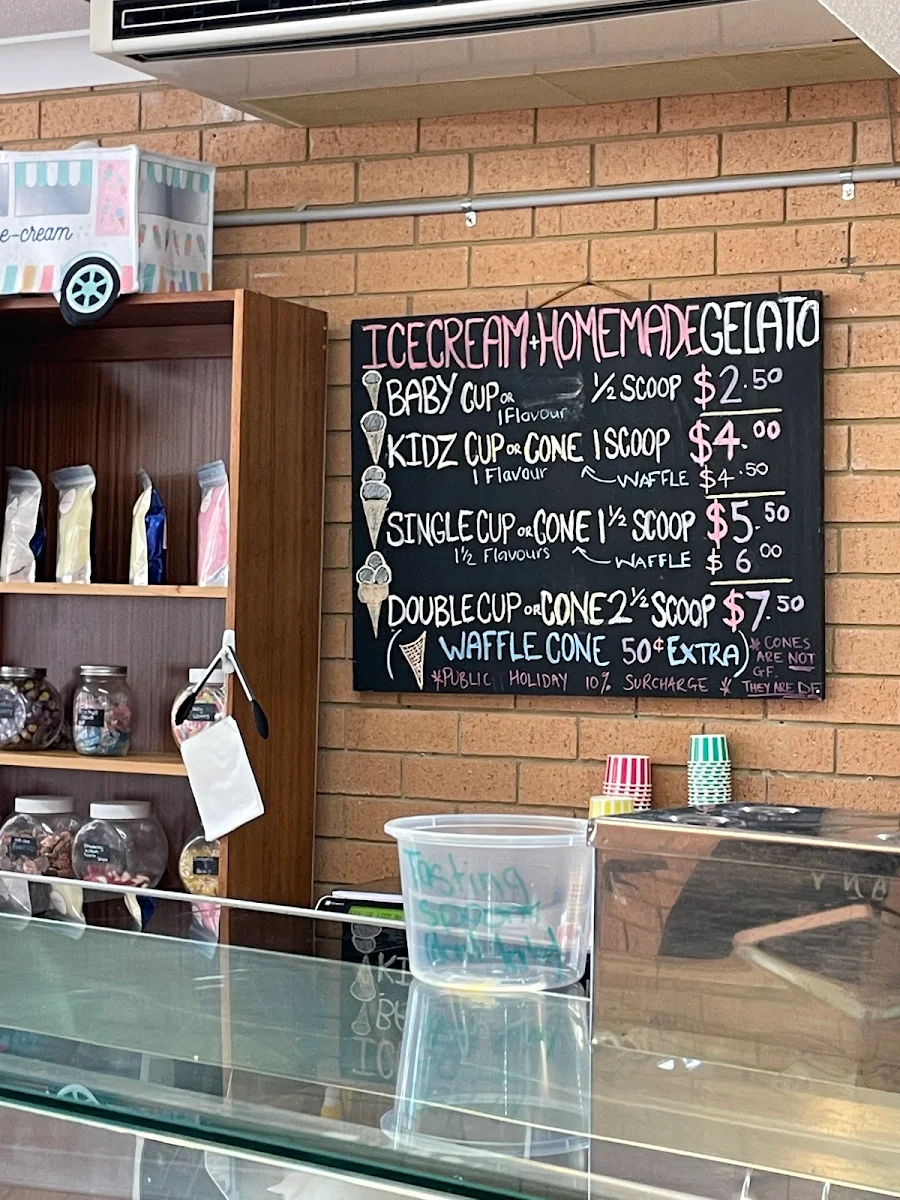 e-cream
ICECREAM + HOMEMADE GELATO
BABY CUP OR 1/2 SCOOP $2.50
1 Flavour
KIDZ CUP OR CONE 1 SCOOP $4.00
1 Flavour WAFFLE $4.50
SINGLE CUP OR CONE 1 1/2 SCOOP $5.50
1 1/2 Flavours WAFFLE $6.00
DOUBLE CUP OR CONE 2 1/2 SCOOP $7.50
( WAFFLE CONE 50¢ EXTRA )
* PUBLIC HOLIDAY 10% SURCHARGE *
* CONES
ARE NOT
GF.
THEY ARE DF
Tasting